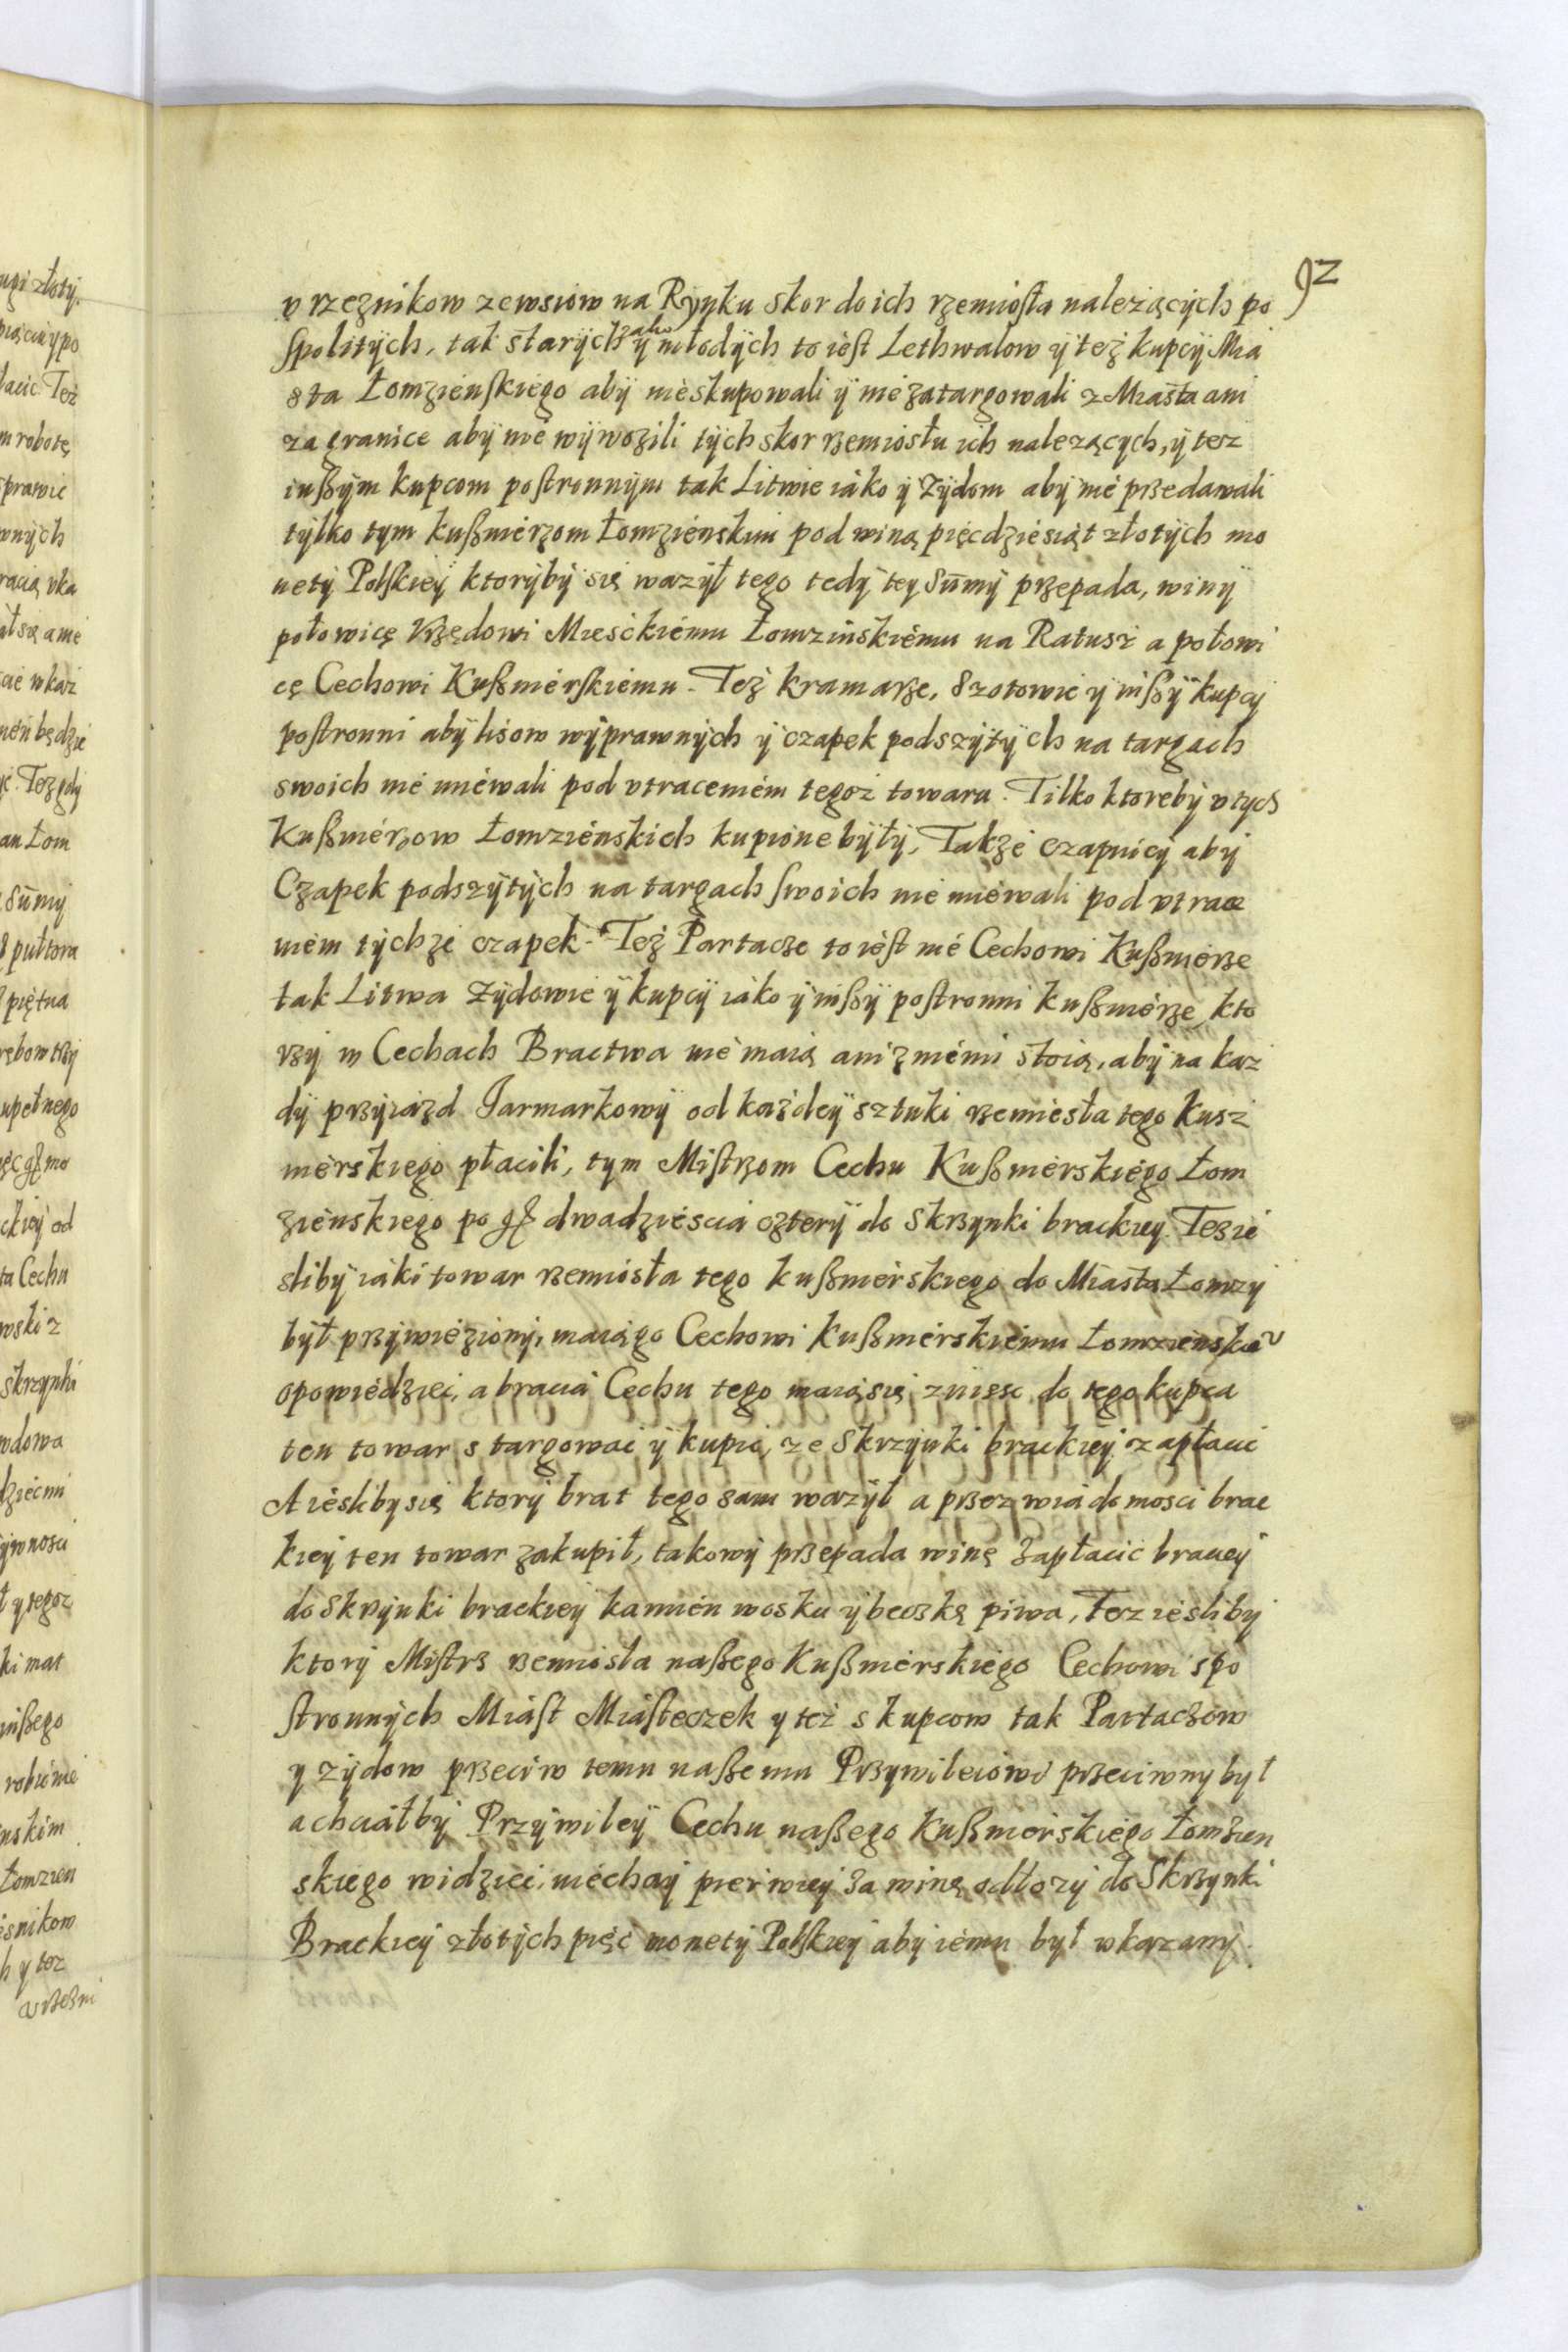 92
v rzeznikow zewsiow na Rynku skor do ich rzemiosła należących po
spolitych, tak starych iako y młodych to iest Lethwalow y też kupcy Mia
sta Łomzienskiego aby nieskupowali y niezatargowali z Miasta ani
za granice aby nie wywozili tych skor rzemiosłu ich nalezących, y tesz
inßym kupcom postronnym tak Litwie iako y Zydom aby nie przedawali
tylko tym kußnierzom Łomzienskim pod winą pięcdziesiąt złotych mo
nety Polskiey ktoryby się wazył tego tedy tey Sumy przepada, winy
połowicę Vrzędowi Mieśckiemu Łomzinskiemu na Ratusz a połowi
cę Cechowi Kußnierskiemu. Też kramarze, Szotowie y inßy kupcy
postronni aby lisow wyprawnych y czapek podszytych na targach
swoich nie miewali pod vtraceniem tegoż towaru. Tilko ktoreby v tych
Kußnierzow Łomzienskich kupione były, Także czapnicy aby
Czapek podszytych na targach swoich nie miewali pod vtrace
niem tychże czapek. Też Partacze to iest nie Cechowi Kußnierze
tak Litwa Zydowie y kupcy iako y inßy postronni kußnierze, kto
rzy w Cechach Bractwa nie maią ani z niemi stoią, aby na kaz
dy przyiazd Jarmarkowy od każdey sztuki rzemiesła tego kusz
nierskiego płacili, tym Mistrzom Cechu Kußnierskiego Łom
zienskiego po gß dwadziescia cztery do Skrzynki brackiey. Tesz ie
sliby iaki towar rzemiosła tego kußnierskiego do Miasta Łomzy
był przywieziony, maią go Cechowi kußnierskiemu Łomzienskie
opowiedziec, a bracia Cechu tego maią się zniesc do tego kupca
ten towar s targowac y kupic, ze Skrzynki brackiey zapłacic
A iesliby się ktory brat tego sam wazył a przez wiadomosci brac
kiey ten towar zakupił, takowy przepada winę zapłacic braciey
do Skrzynki brackiey kamien wosku y beczkę piwa, Tesz iesliby
ktory Mistrz rzemiosła naßego Kußnierskiego Cechowi s po
stronnych Miast Miasteczek y też s kupcow tak Partaczow
y zydow przeciw temu naßemu Przywileiowi przeciwny był
a chciałby Przywiley Cechu naßego Kußnierskiego Łomzien
skiego widziec, niechay pierwiey za winę odłozy do Skrzynki
Brackiey złotych pięć monety Polskiey aby iemu był wkazany.